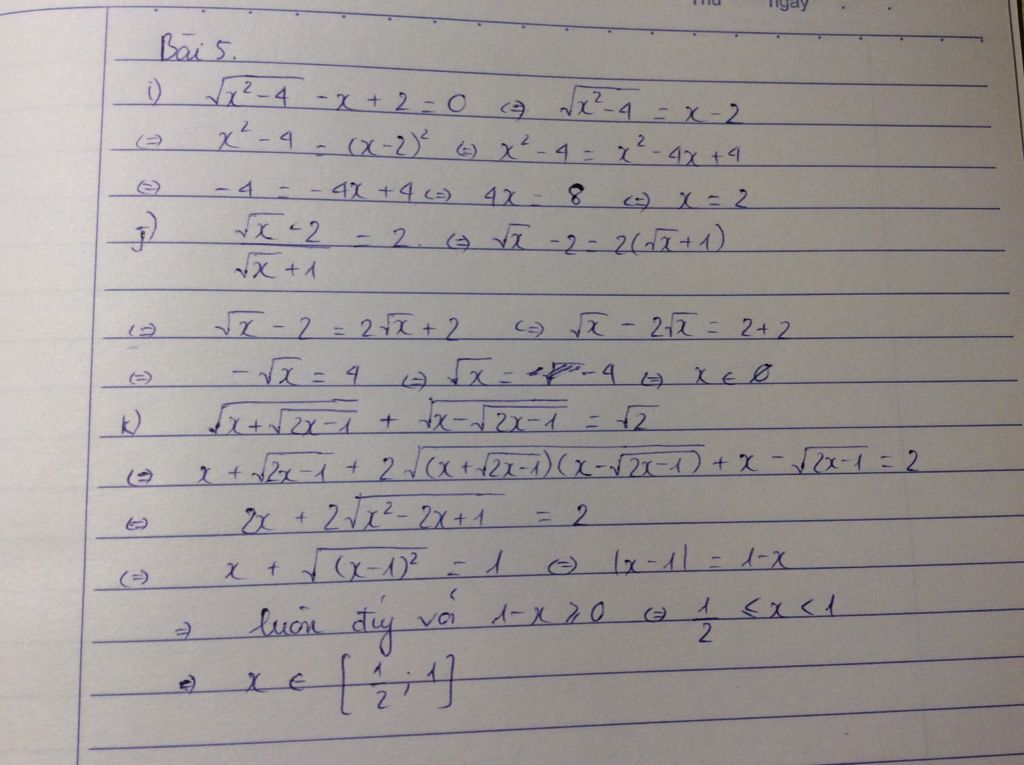 Thứ ngày
Bài 5.
i) √(x² - 4) - x + 2 = 0 <=> √(x² - 4) = x - 2
<=> x² - 4 = (x - 2)² <=> x² - 4 = x² - 4x + 4
<=> -4 = -4x + 4 <=> 4x = 8 <=> x = 2
j) (√x - 2)/(√x + 1) = 2. <=> √x - 2 = 2(√x + 1)
<=> √x - 2 = 2√x + 2 <=> √x - 2√x = 2 + 2
<=> -√x = 4 <=> √x = -4 <=> x ∈ ∅
k) √(x + √(2x - 1)) + √(x - √(2x - 1)) = √2
<=> x + √(2x - 1) + 2√((x + √(2x - 1))(x - √(2x - 1))) + x - √(2x - 1) = 2
<=> 2x + 2√(x² - 2x + 1) = 2
<=> x + √((x - 1)²) = 1 <=> |x - 1| = 1 - x
=> luôn đúg với 1 - x ⩾ 0 <=> 1/2 ⩽ x < 1
=> x ∈ [1/2 ; 1]